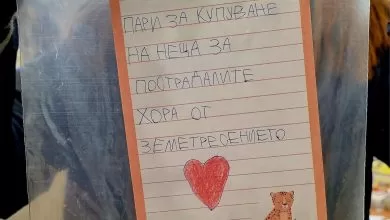 ПАРИ ЗА КУПУВАНЕ
НА НЕЩА ЗА
ПОСТРАДАЛИТЕ
ХОРА ОТ
ЗЕМЕТРЕСЕНИЕТО